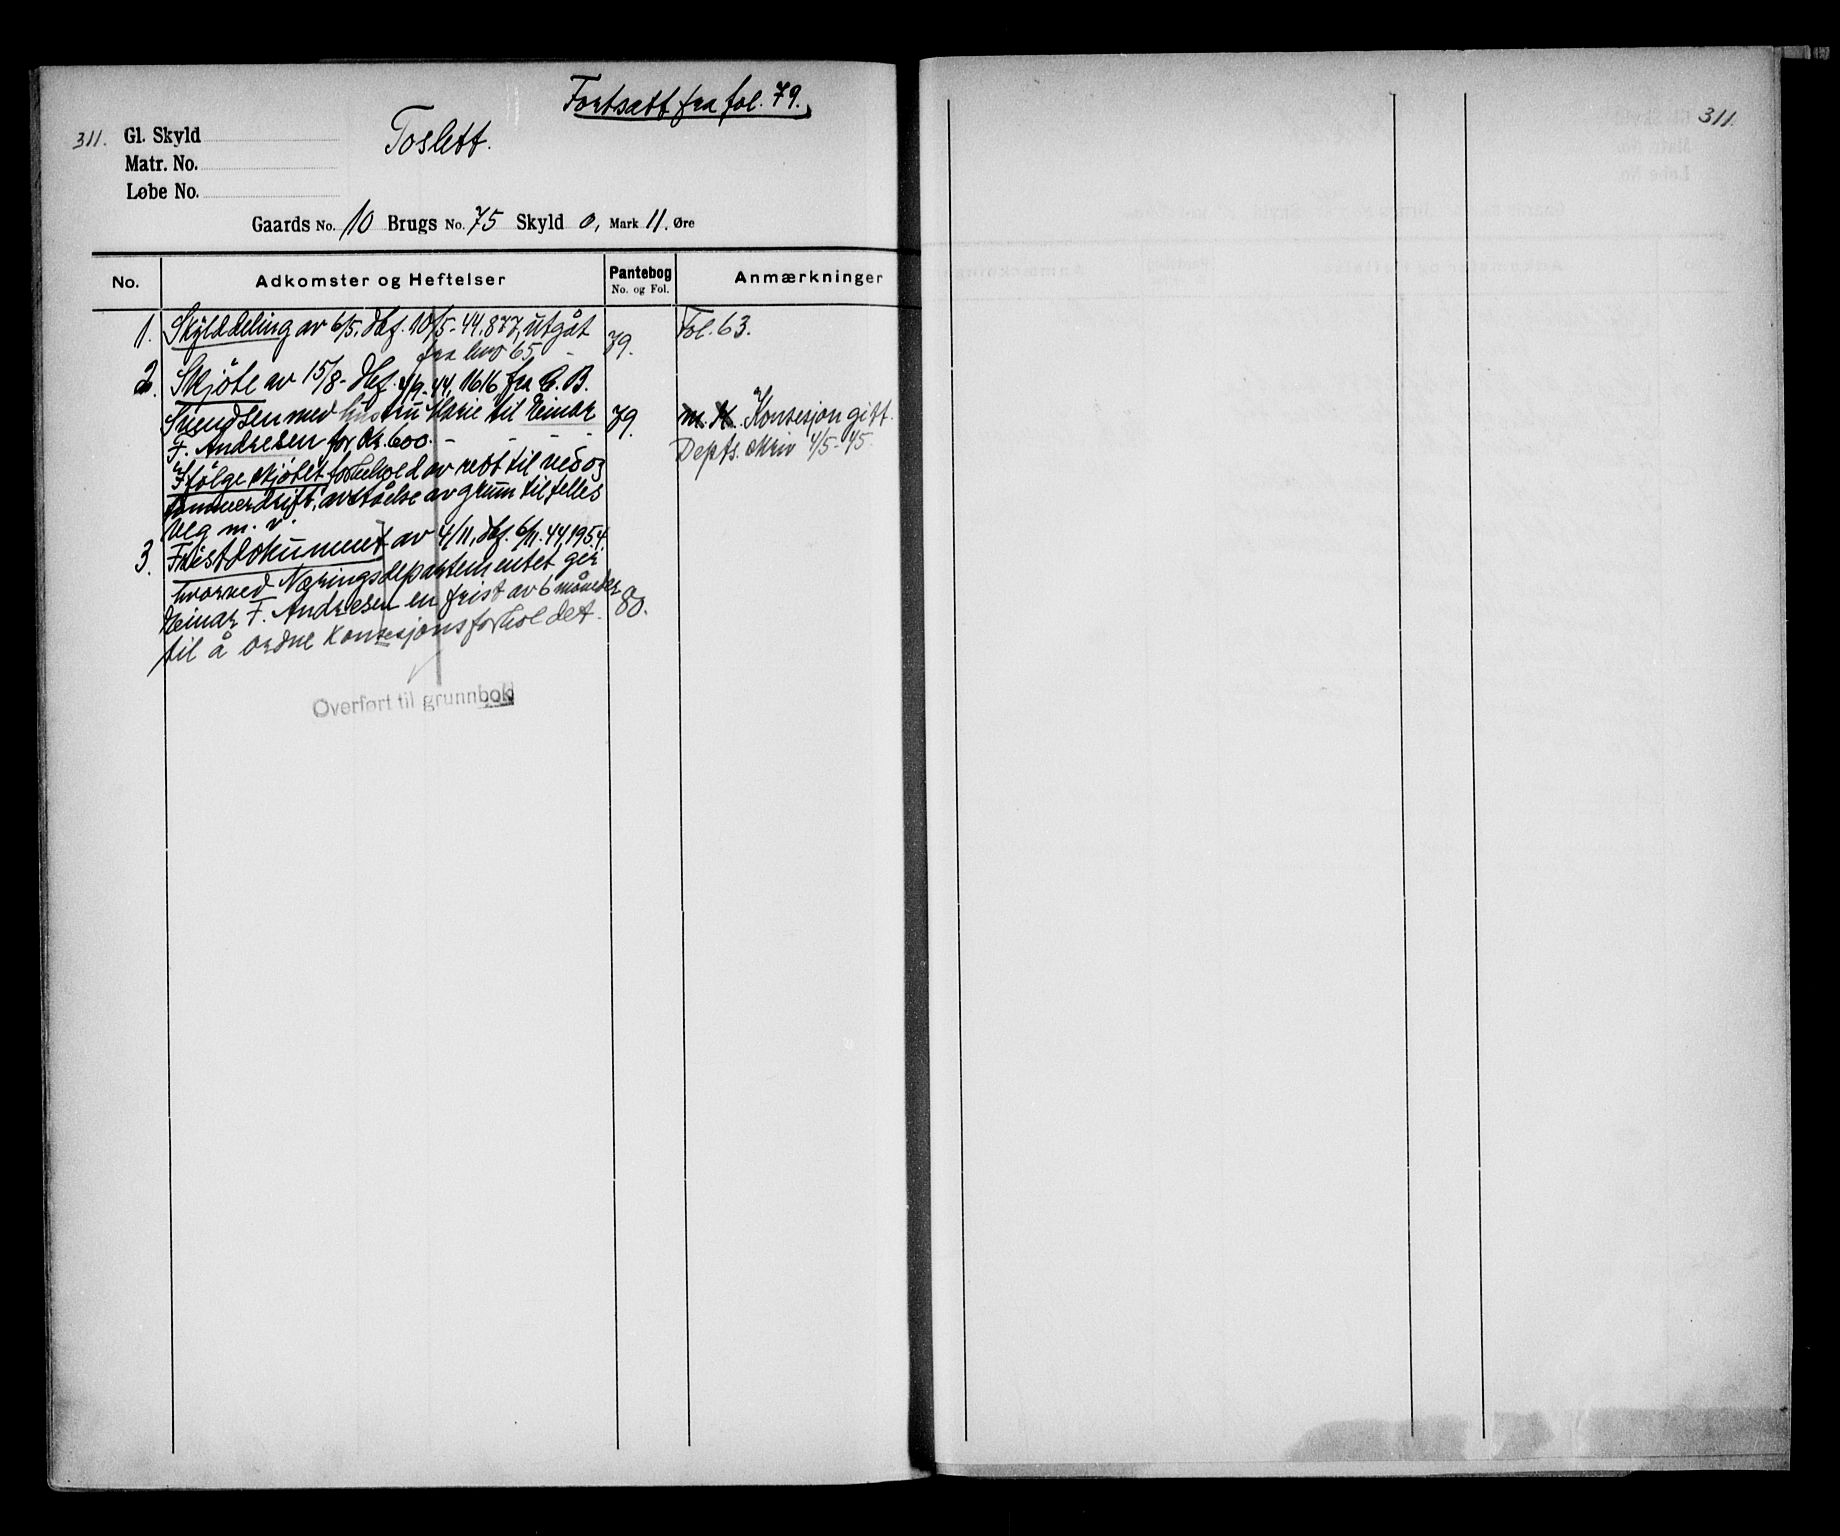 Fortsatt fra fol. 79.
311. Gl. Skyld
Toslett.
Matr. No.
Løbe No.
Gaards No. 10 Brugs No. 75 Skyld 0, Mark 11. Øre
No. Adkomster og Heftelser Pantebog No. og Fol. Anmærkninger
1. Skylddeling av 6/5, tlgf. 10/5-44, 877, utgåt
fra bno 65 - 79. Fol. 63.
2. Skjøte av 15/8- tlgf. 4/9-44, 1616 fra C. B.
Svendsen med hustru Marie til Einar 79. m. H. Konsesjon gitt.
F. Andresen for kr. 600. - - - - Depts. skriv 4/5-45.
Ifølge skjøtet forbehold av rett til ved og
tømmerdrift, avståelse av grunn til felles
veg m. v.
3. Fristdokument av 4/11, tlgf. 6/11.44, 1954,
hvorved Næringsdepartementet gir
Einar F. Andresen en frist av 6 måneder 80.
til å ordne konsesjonsforholdet.
Overført til grunnbok
311.